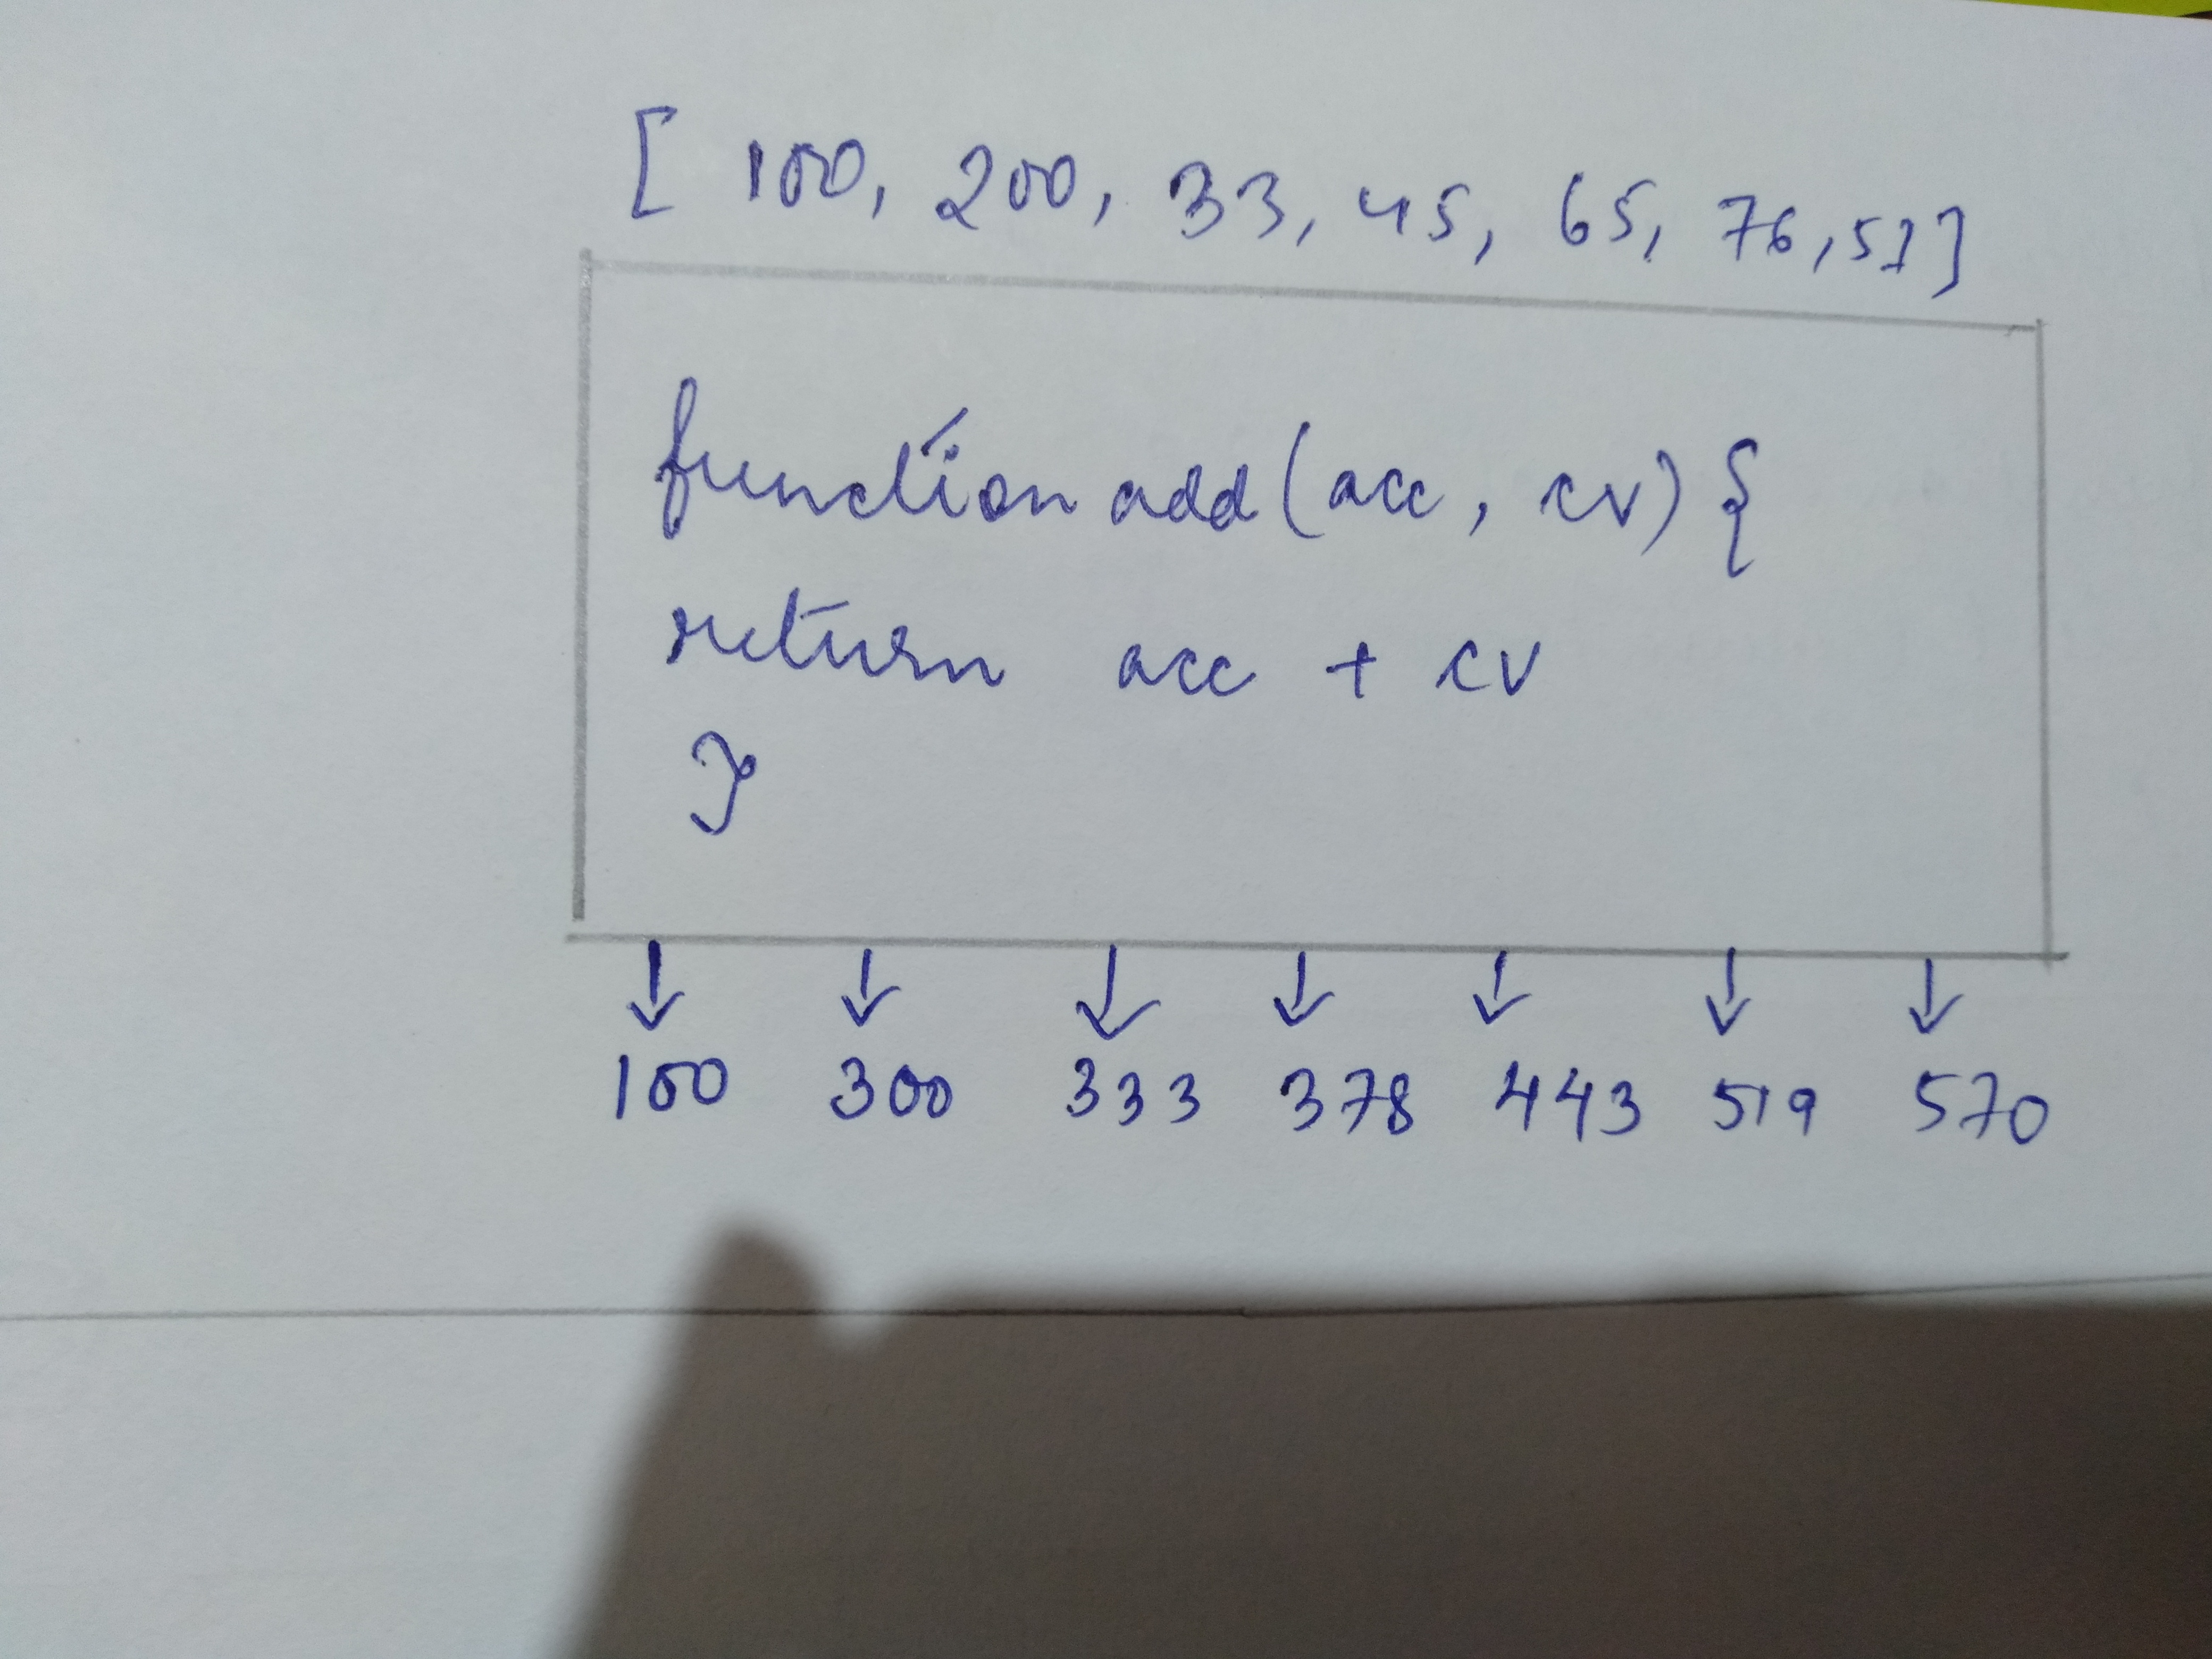 [ 100, 200, 33, 45, 65, 76, 51]
function add (acc, cv) {
return acc + cv
}
100 300 333 378 443 519 570